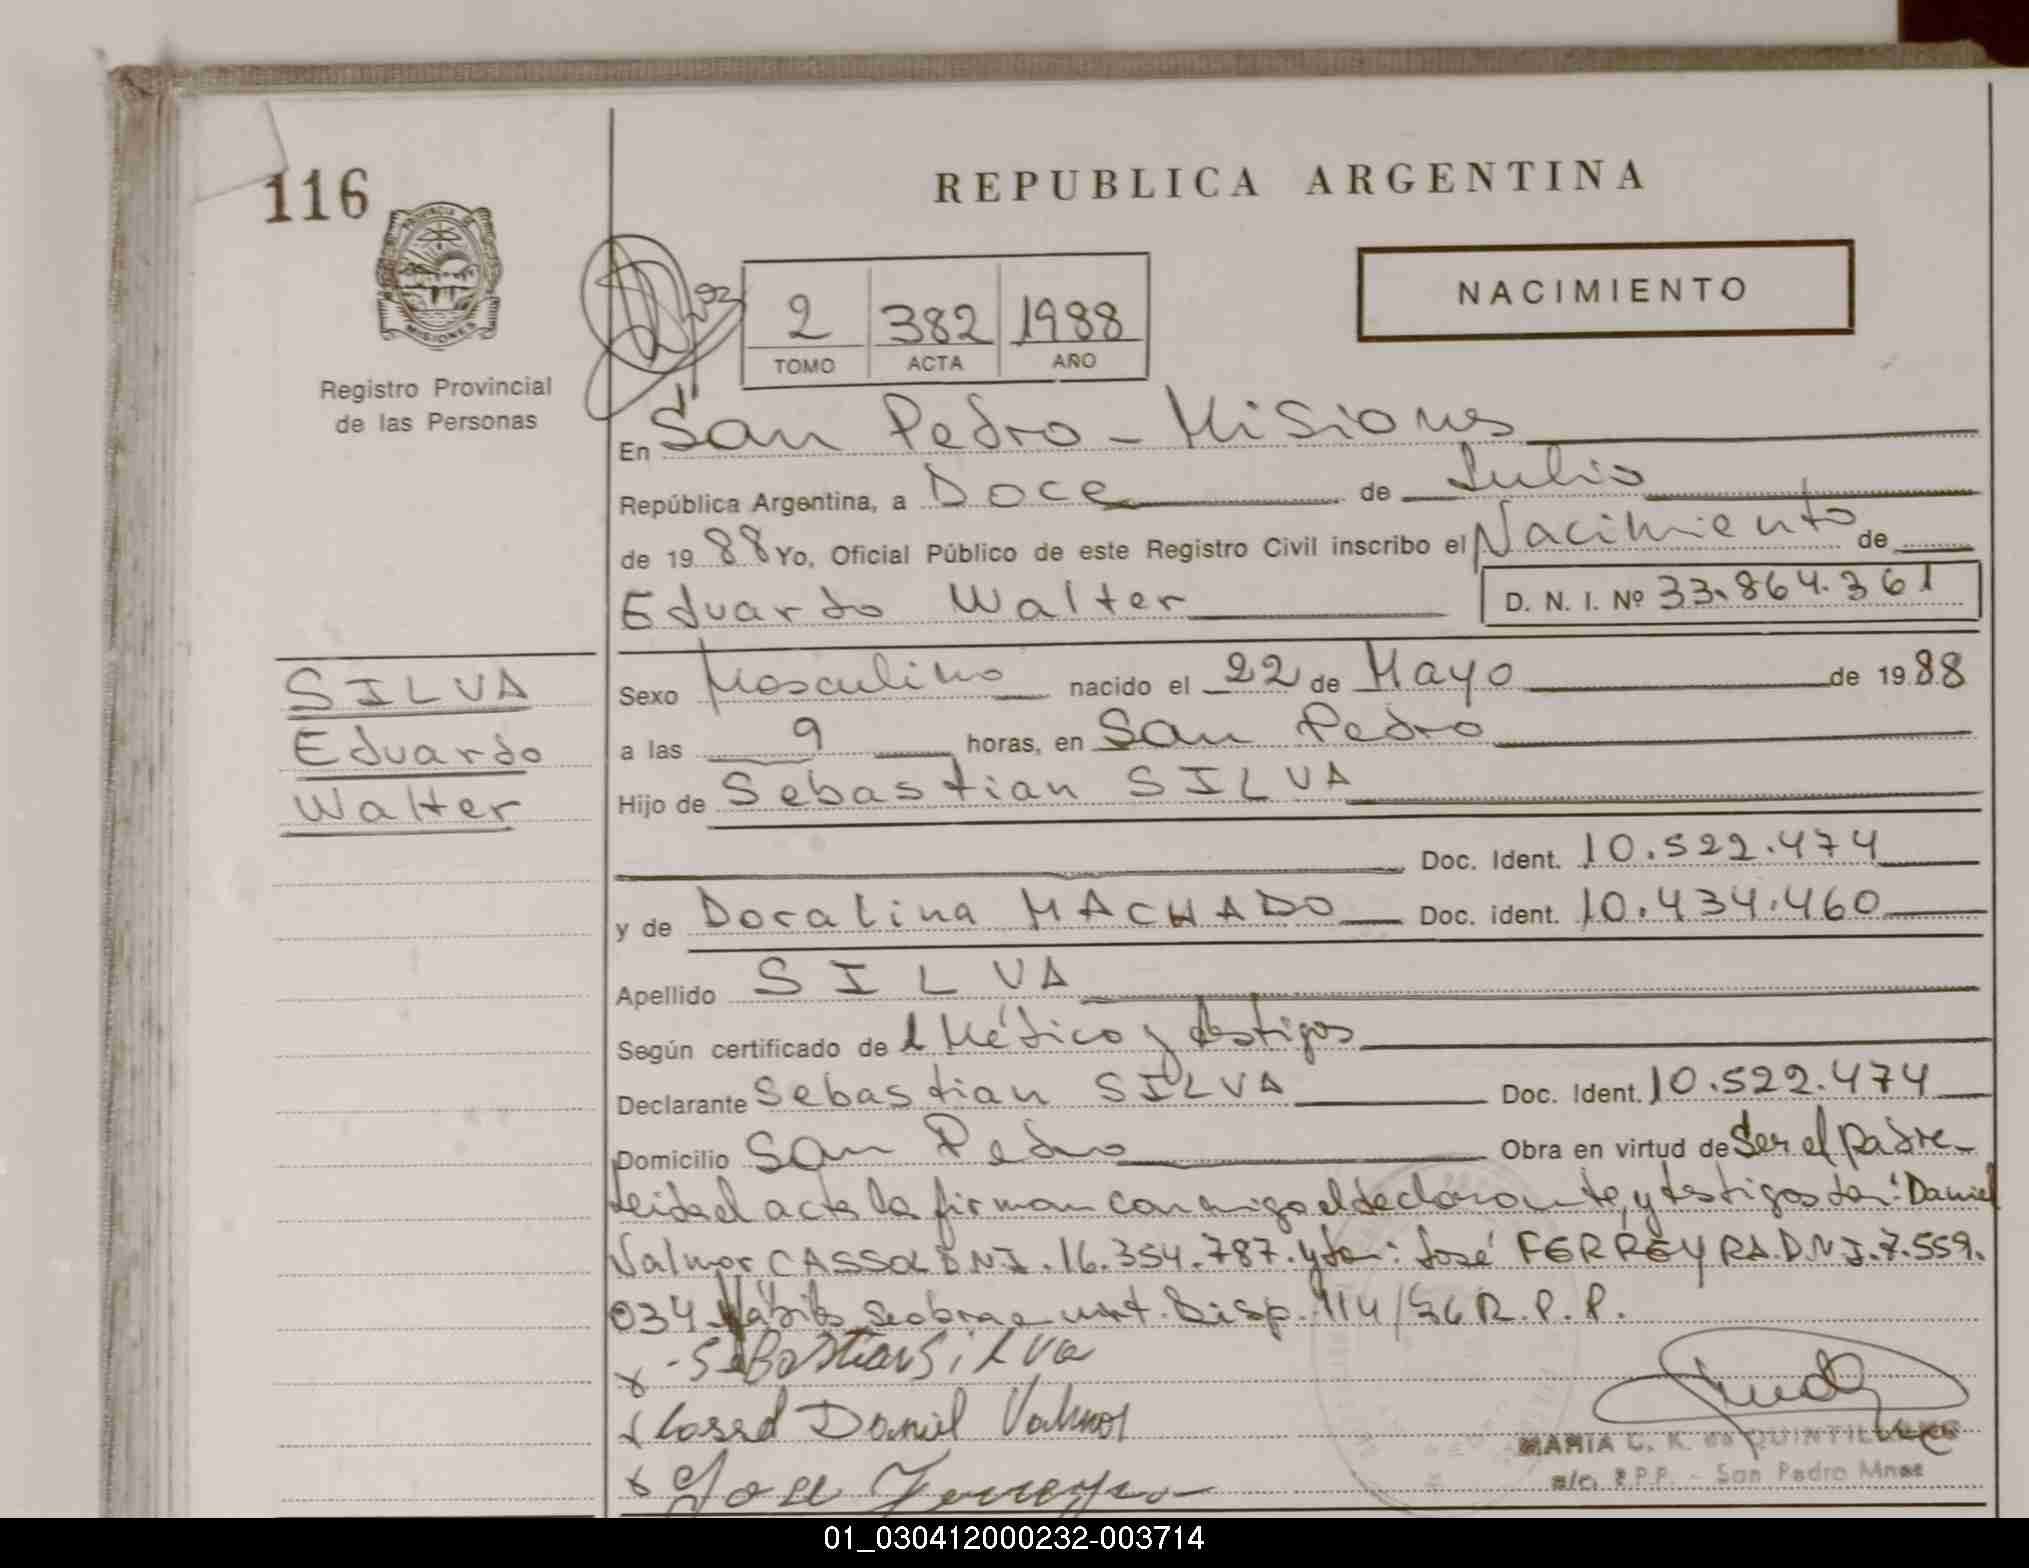 116
REPUBLICA ARGENTINA
PROVINCIA DE
MISIONES
Registro Provincial
de las Personas
2 382 1988
TOMO ACTA AÑO
NACIMIENTO
En San Pedro - Misiones
República Argentina, a Doce de Julio
de 19 88 Yo, Oficial Público de este Registro Civil inscribo el Nacimiento de
Eduardo Walter D. N. I. Nº 33.864.361
SILVA
Eduardo
Walter
Sexo Masculino nacido el 22 de Mayo de 19 88
a las 9 horas, en San Pedro
Hijo de Sebastian SILVA
Doc. Ident. 10.522.474
y de Doralina MACHADO Doc. ident. 10.434.460
Apellido SILVA
Según certificado de l Médico y testigos
Declarante Sebastian SILVA Doc. Ident. 10.522.474
Domicilio San Pedro Obra en virtud de Ser el padre-
Leida el acta la firman conmigo el declarante, y testigos Don: Daniel
Valmor CASSOL D.N.I. 16.354.787. y Don: José FERREYRA D.N.I. 7.559.
034 Hábiles Se obra en virt. Disp. 114/86 R.P.P.
x Sebastian Silva
x Cassol Daniel Valmor
x Jose Ferreyra
MARIA C. K. de
a/c. R.P.P. - San Pedro Mnes
01_030412000232-003714